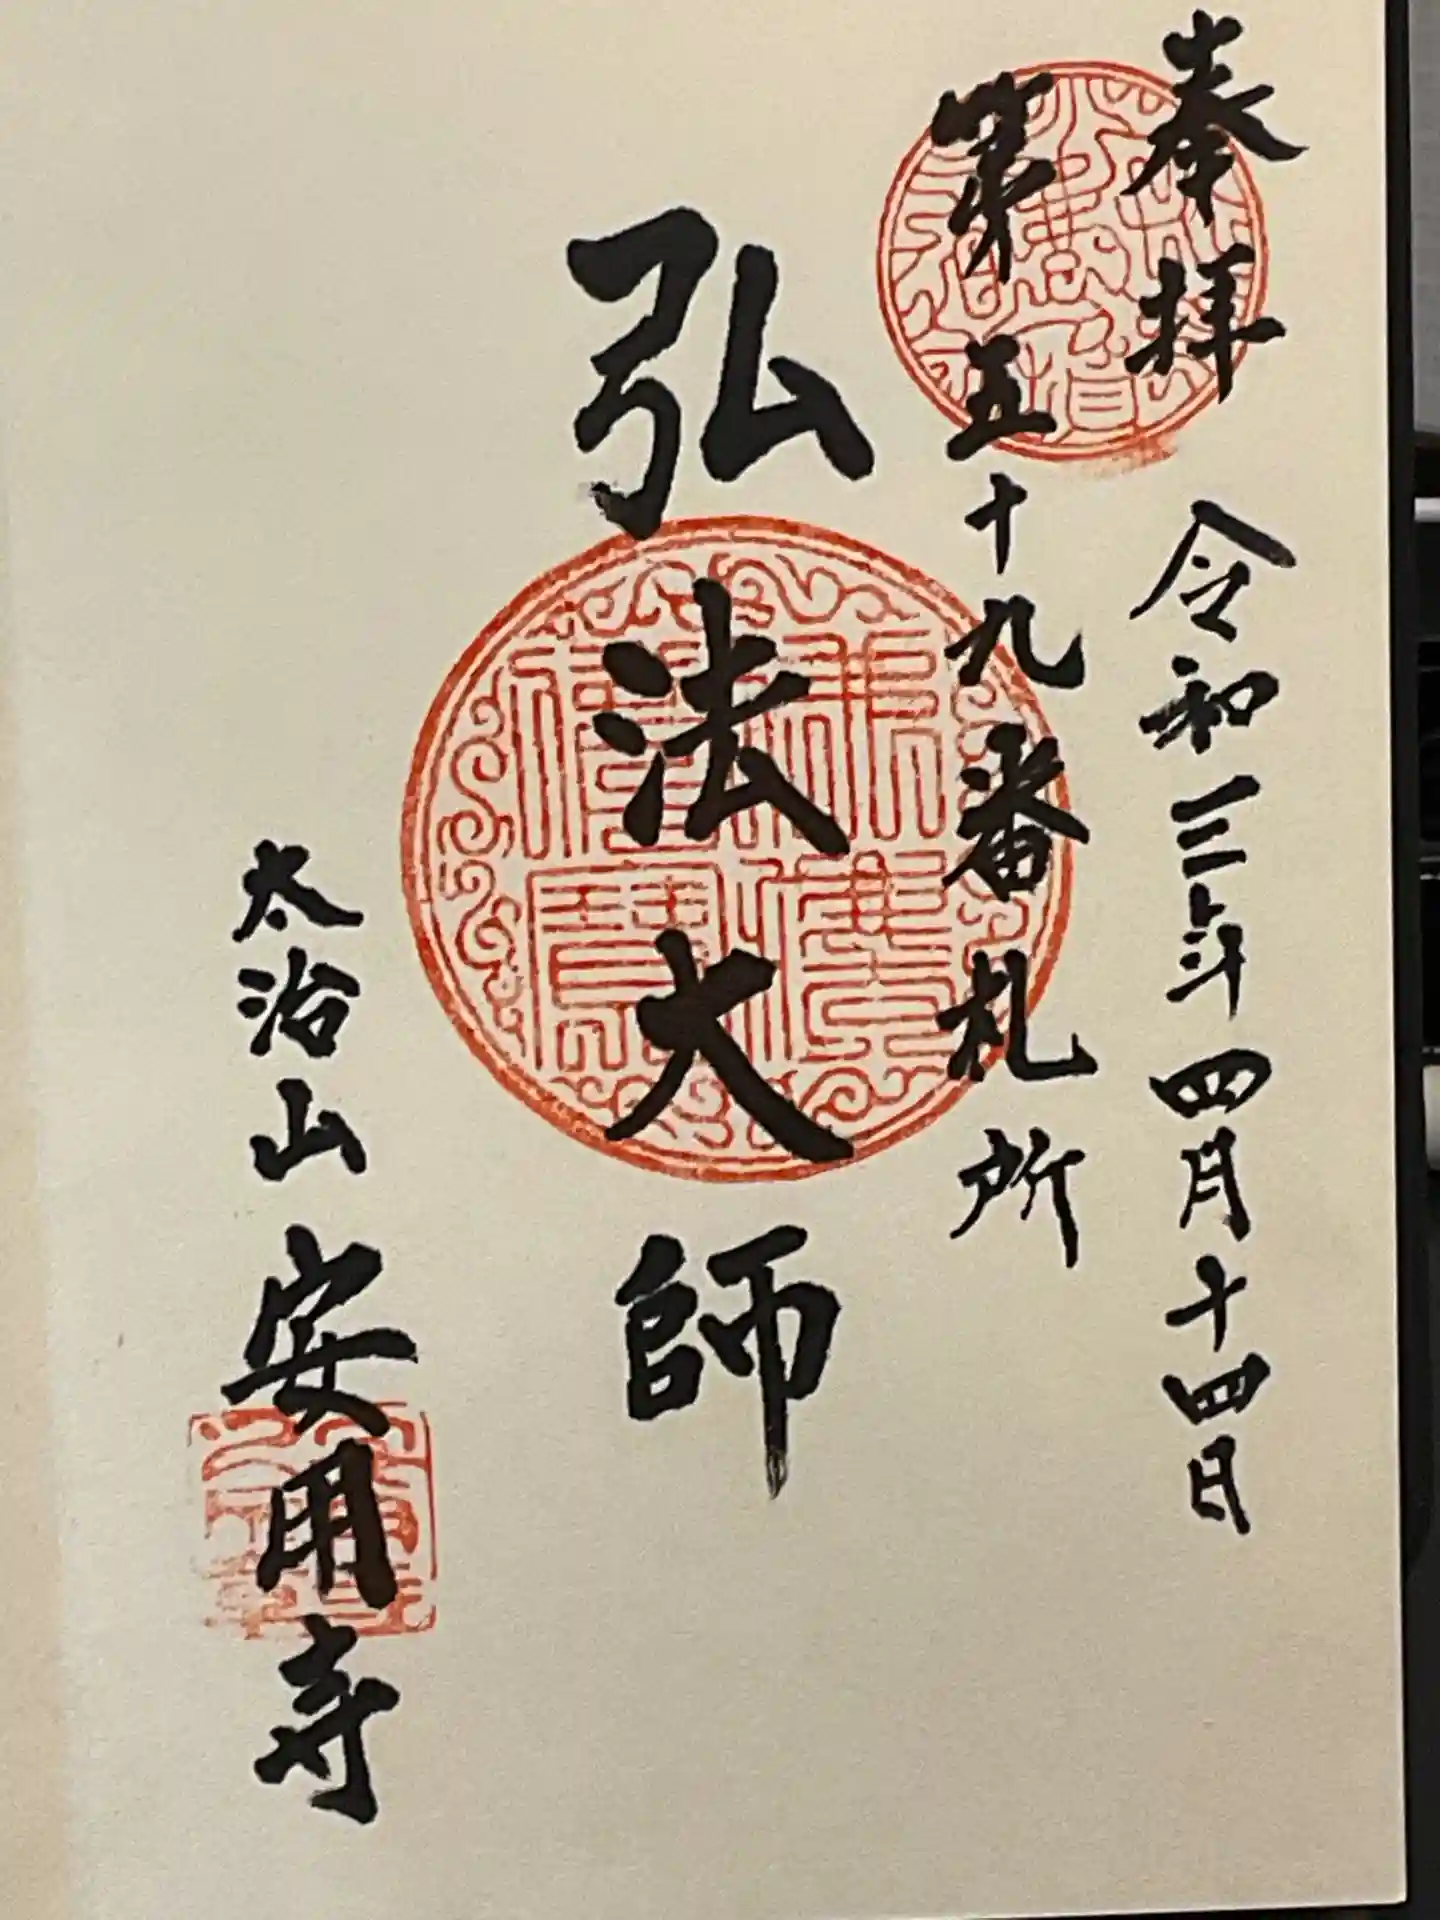 奉拝
令和三年四月十四日
第五十九番札所
弘法大師
太治山
安用寺